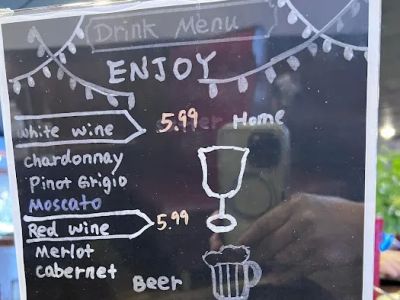 Drink Menu
ENJOY
White wine 5.99 Home
Chardonnay
Pinot Grigio
Moscato
Red wine 5.99
Merlot
Cabernet
Beer